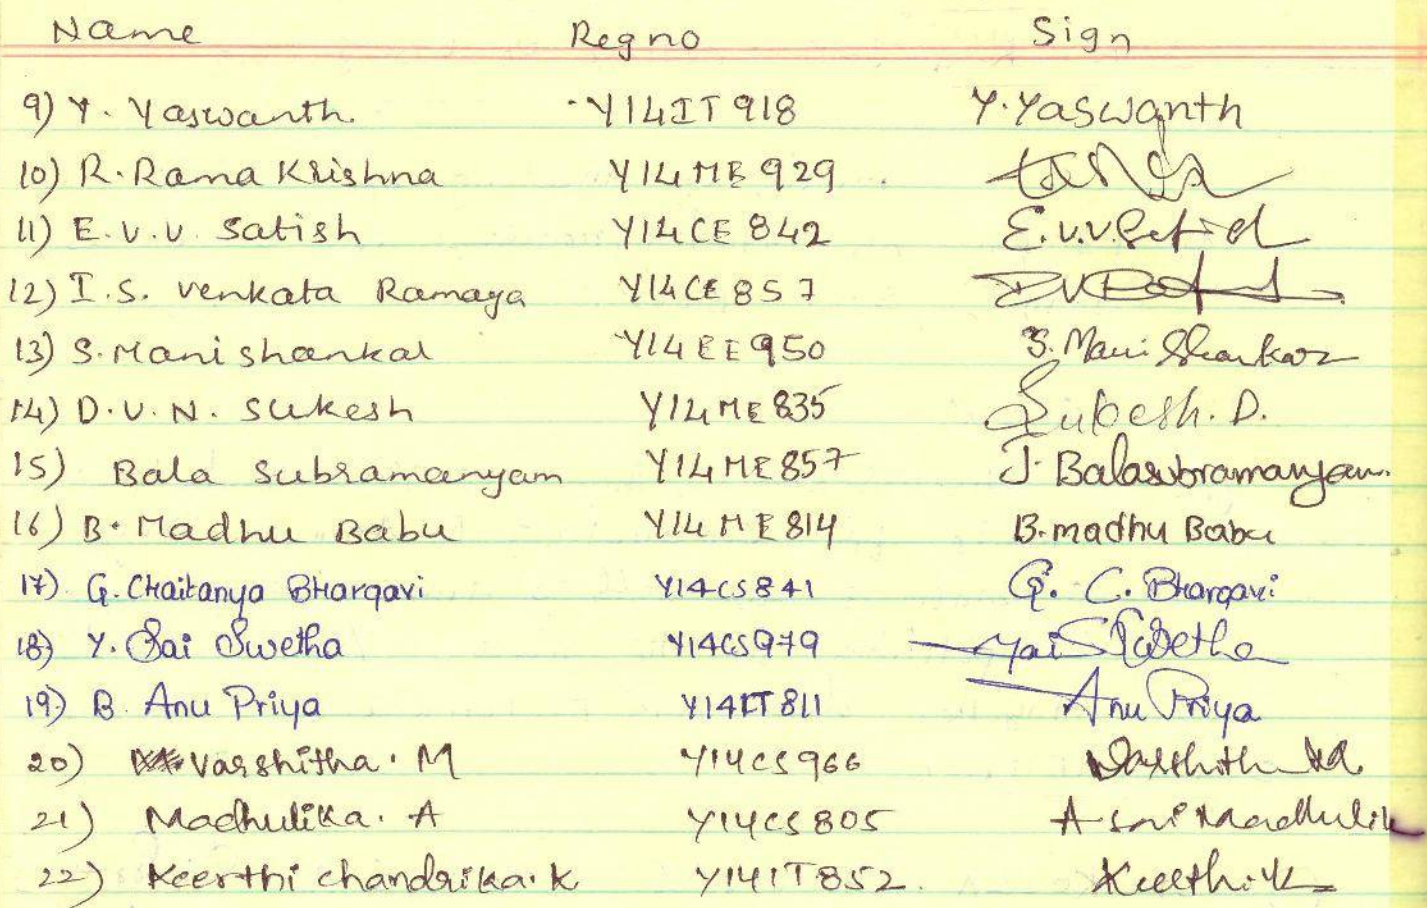 Name Reg no Sign
9) Y. Yaswanth. Y14IT918 Y.Yaswanth
10) R. Rama Krishna Y14ME929
11) E.V.V. Satish Y14CE842 E.V.V Satish
12) I.S. Venkata Ramaya Y14CE857
13) S. Mani shankar Y14EE950 S. Mani Shankar
14) D.V.N. Sukesh Y14ME835 Sukesh. D.
15) Bala Subramanyam Y14ME857 J. Balasubramanyam.
16) B. Madhu Babu Y14ME814 B. madhu Babu
17) G. Chaitanya Bhargavi Y14CS841 G. C. Bhargavi
18) Y. Sai Swetha Y14CS979 Swetha
19) B. Anu Priya Y14IT811 Anu Priya
20) Varshitha. M Y14CS966
21) Madhulika. A Y14CS805 A
22) Keerthi chandrika. K Y14IT852. Keerthi.K